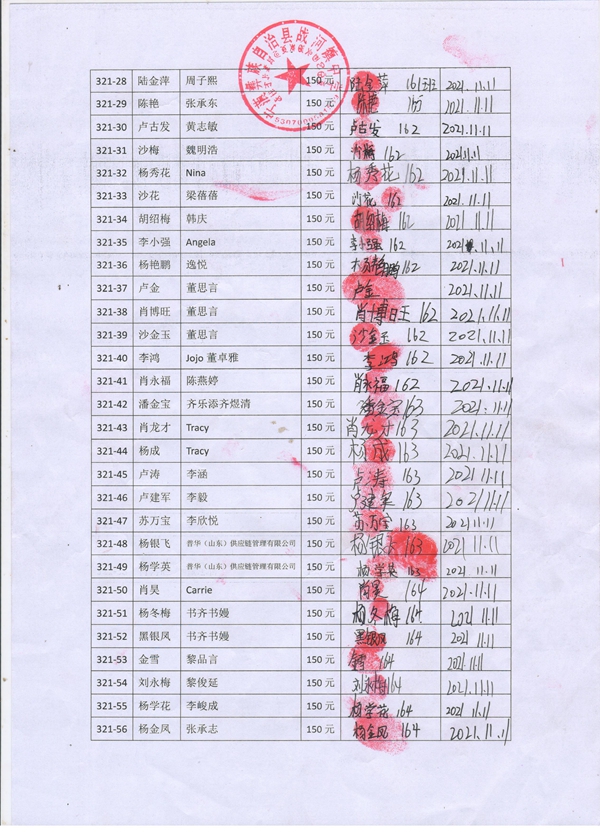 自治县战河镇中
321-28 陆金萍 周子熙 150 元 陆金萍 161班 2021.11.11
321-29 陈艳 张承东 150 元 陈艳 2021.11.11
321-30 卢古发 黄志敏 150 元 卢古发 162 2021.11.11
321-31 沙梅 魏明浩 150 元 沙梅 162 2021.11.11
321-32 杨秀花 Nina 150 元 杨秀花 162 2021.11.11
321-33 沙花 梁蓓蓓 150 元 沙花 162 2021.11.11
321-34 胡绍梅 韩庆 150 元 胡绍梅 162 2021.11.11
321-35 李小强 Angela 150 元 李小强 162 2021.11.11
321-36 杨艳鹏 逸悦 150 元 杨艳鹏 162 2021.11.11
321-37 卢金 董思言 150 元 卢金 2021.11.11
321-38 肖博旺 董思言 150 元 肖博旺 162 2021.11.11
321-39 沙金玉 董思言 150 元 沙金玉 162 2021.11.11
321-40 李鸿 Jojo 董卓雅 150 元 李鸿 162 2021.11.11
321-41 肖永福 陈燕婷 150 元 肖永福 162 2021.11.11
321-42 潘金宝 齐乐添齐煜清 150 元 潘金宝 163 2021.11.11
321-43 肖龙才 Tracy 150 元 肖龙才 163 2021.11.11
321-44 杨成 Tracy 150 元 杨成 163 2021.11.11
321-45 卢涛 李涵 150 元 卢涛 163 2021.11.11
321-46 卢建军 李毅 150 元 卢建军 163 2021.11.11
321-47 苏万宝 李欣悦 150 元 苏万宝 163 2021.11.11
321-48 杨银飞 普华（山东）供应链管理有限公司 150 元 杨银飞 163 2021.11.11
321-49 杨学英 普华（山东）供应链管理有限公司 150 元 杨学英 163 2021.11.11
321-50 肖昊 Carrie 150 元 肖昊 164 2021.11.11
321-51 杨冬梅 书齐书嫚 150 元 杨冬梅 164 2021.11.11
321-52 黑银凤 书齐书嫚 150 元 黑银凤 164 2021.11.11
321-53 金雪 黎品言 150 元 金雪 164 2021.11.11
321-54 刘永梅 黎俊延 150 元 刘永梅 164 2021.11.11
321-55 杨学花 李峻成 150 元 杨学花 164 2021.11.11
321-56 杨金凤 张承志 150 元 杨金凤 164 2021.11.11